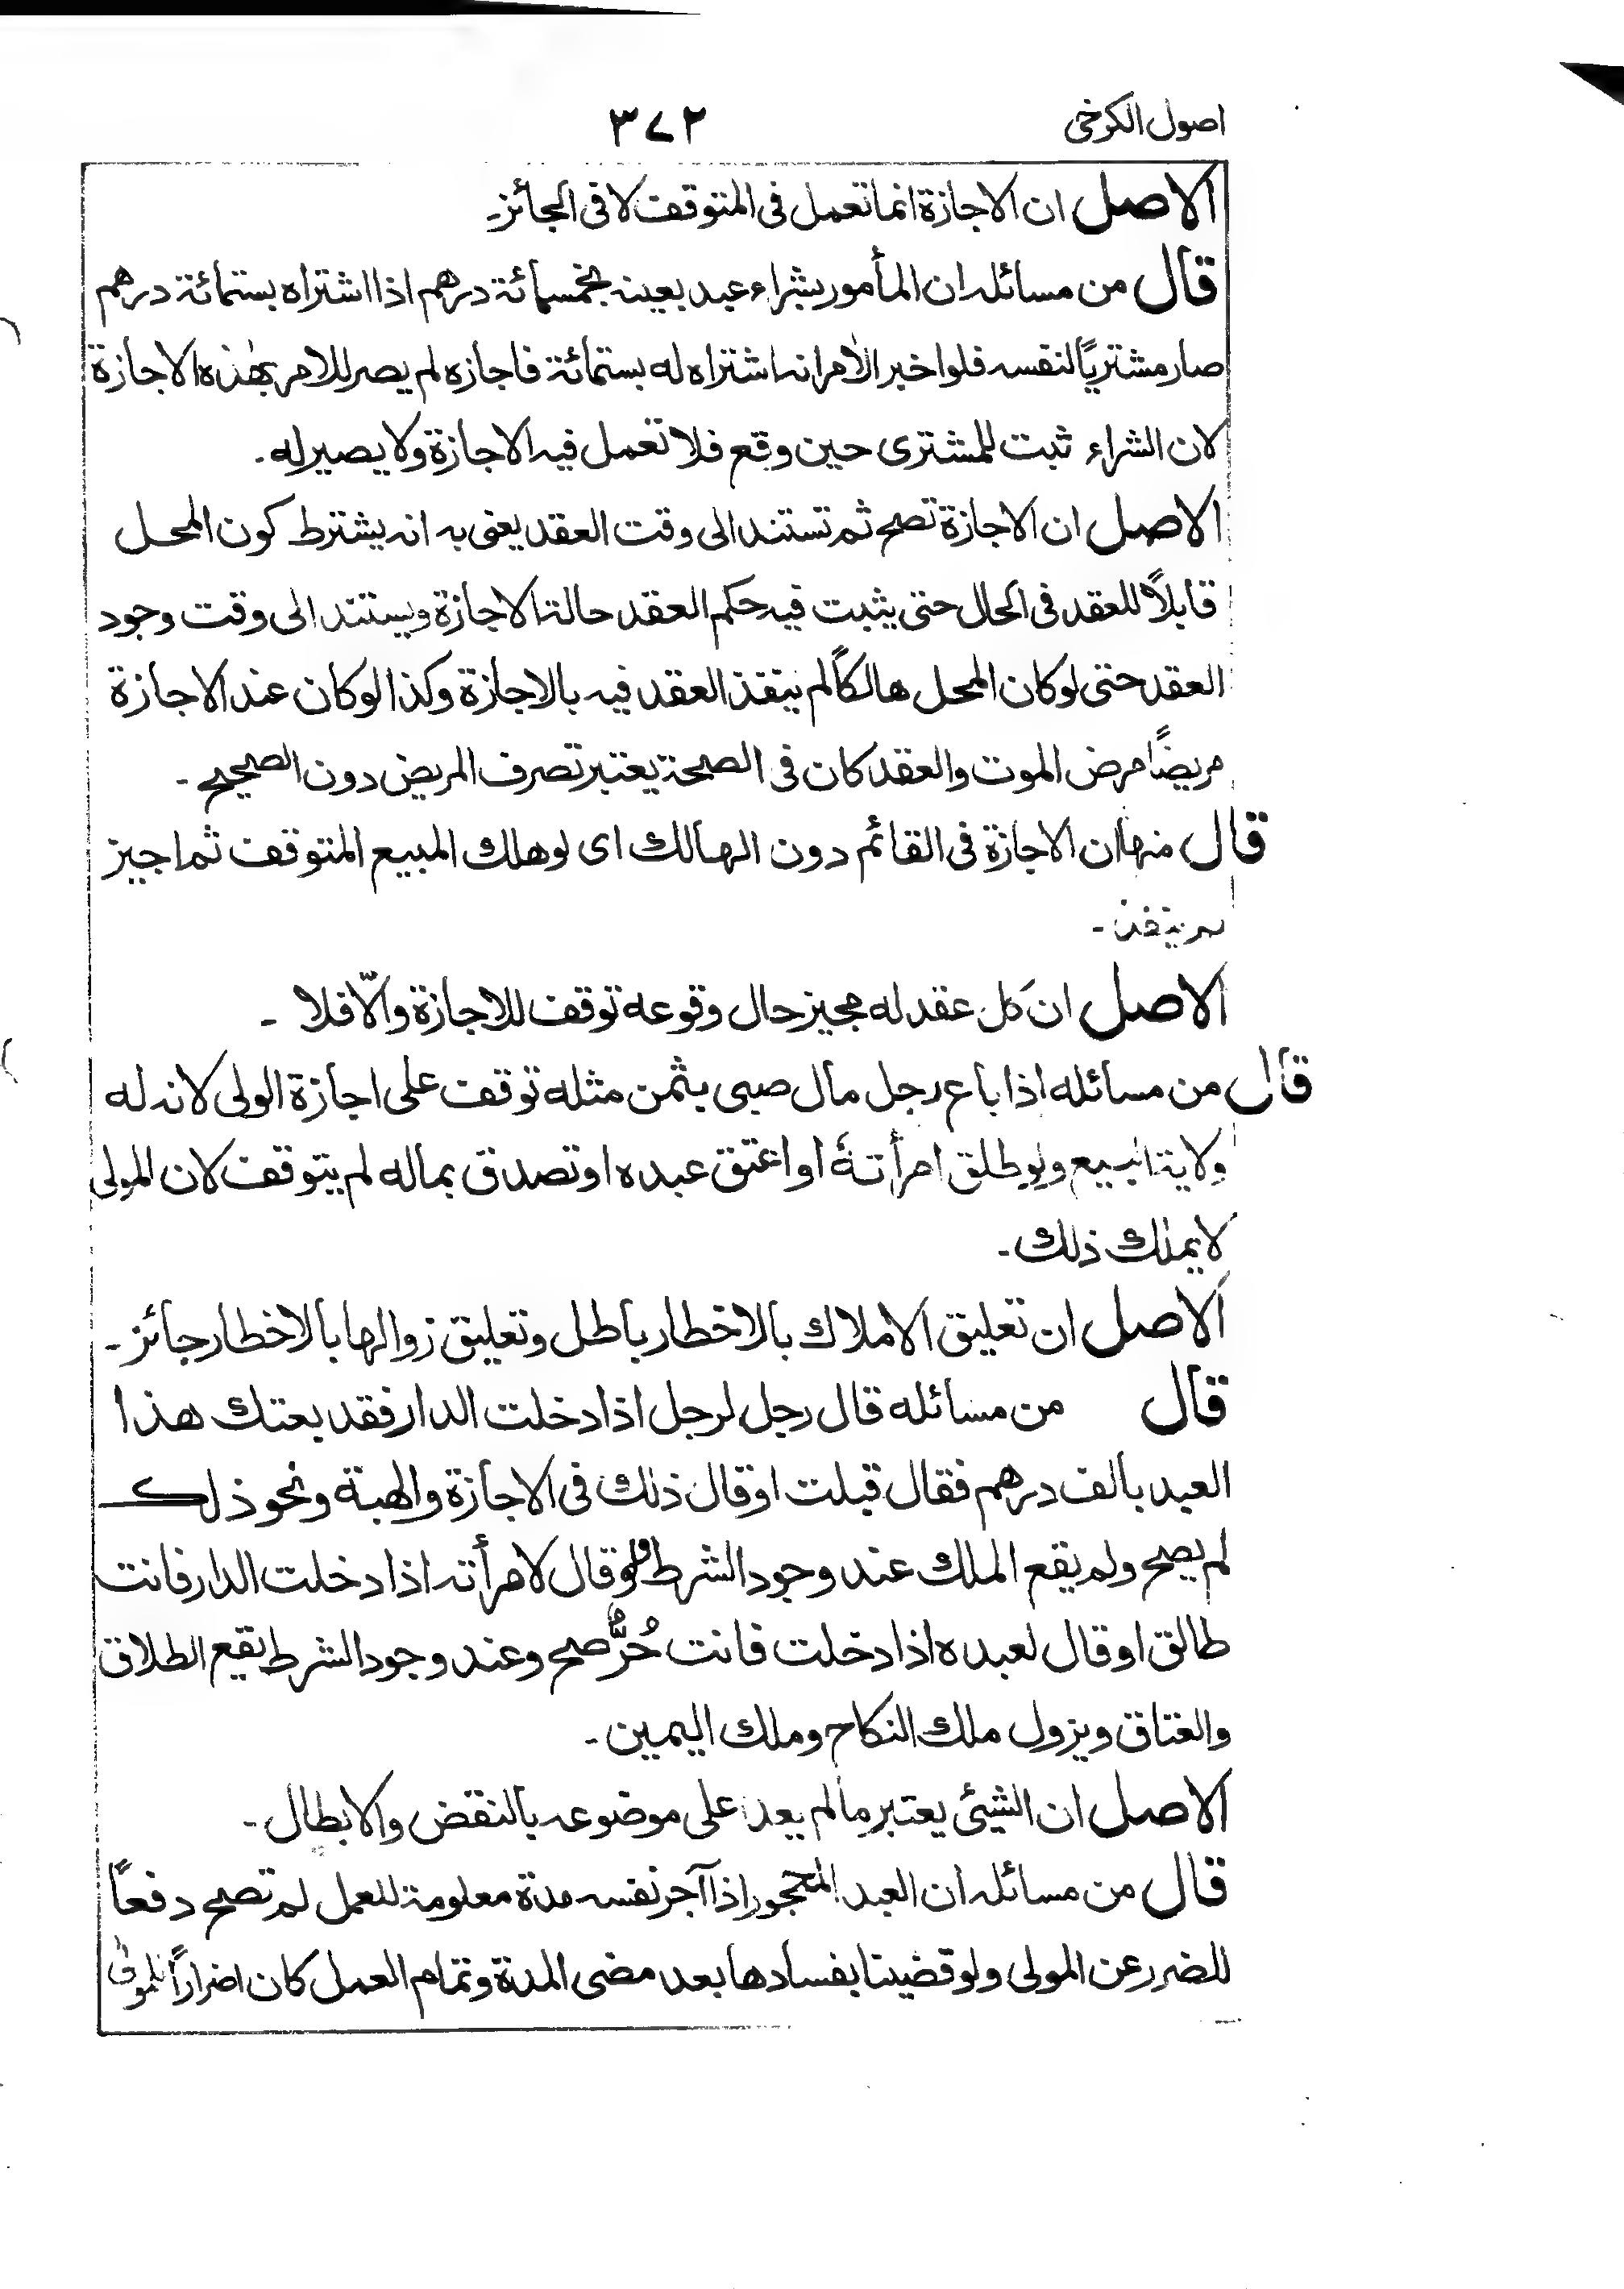 اصول الكرخى
٣٧٢
الاصل ان الاجازة انما تعمل فى المتوقف لا فى الجائز۔
قال من مسائله ان المأمور بشراء عبد بعينه بخمسمائة درهم اذا اشتراه بستمائة درهم
صار مشتريًا لنفسه فلو اخبر الآمر انه اشتراه له بستمائة فاجازه لم يصر للامر بهٰذه الاجازة
لان الشراء ثبت للمشترى حين وقع فلا تعمل فيه الاجازة ولا يصير له۔
الاصل ان الاجازة تصح ثم تستند الى وقت العقد يعنى به انه يشترط كون المحل
قابلاً للعقد فى الحال حتى يثبت فيه حكم العقد حالة الاجازة ويستند الى وقت وجود
العقد حتى لو كان المحل هالكاً لم ينفذ العقد فيه بالاجازة وكذا لو كان عند الاجازة
مريضًا مرض الموت والعقد كان فى الصحة يعتبر تصرف المريض دون الصحيح۔
قال منها ان الاجازة فى القائم دون الهالك اى لو هلك المبيع المتوقف ثم اجيز
لم ينفذ۔
الاصل ان كل عقد له مجيز حال وقوعه توقف للاجازة والّا فلا۔
قال من مسائله اذا باع رجل مال صبى بثمن مثله توقف على اجازة الولى لانه له
ولاية البيع ولو طلق امرأته او اعتق عبده او تصدق بماله لم يتوقف لان المولى
لا يملك ذلك۔
الاصل ان تعليق الاملاك بالاخطار باطل وتعليق زوالها بالاخطار جائز۔
قال من مسائله قال رجل لرجل اذا دخلت الدار فقد بعتك هذا
العبد بالف درهم فقال قبلت او قال ذٰلك فى الاجازة والهبة ونحو ذلك
لم يصح ولم يقع الملك عند وجود الشرط ولو قال لامرأته اذا دخلت الدار فانت
طالق او قال لعبده اذا دخلت فانت حُرٌّ صح وعند وجود الشرط يقع الطلاق
والعتاق ويزول ملك النكاح وملك اليمين۔
الاصل ان الشيئ يعتبر ما لم يعد على موضوعه بالنقض والابطال۔
قال من مسائله ان العبد المحجور اذا آجر نفسه مدة معلومة للعمل لم تصح دفعاً
للضرر عن المولى ولو قضينا بفسادها بعد مضى المدة وتمام العمل كان اضراراً للمولىٰ